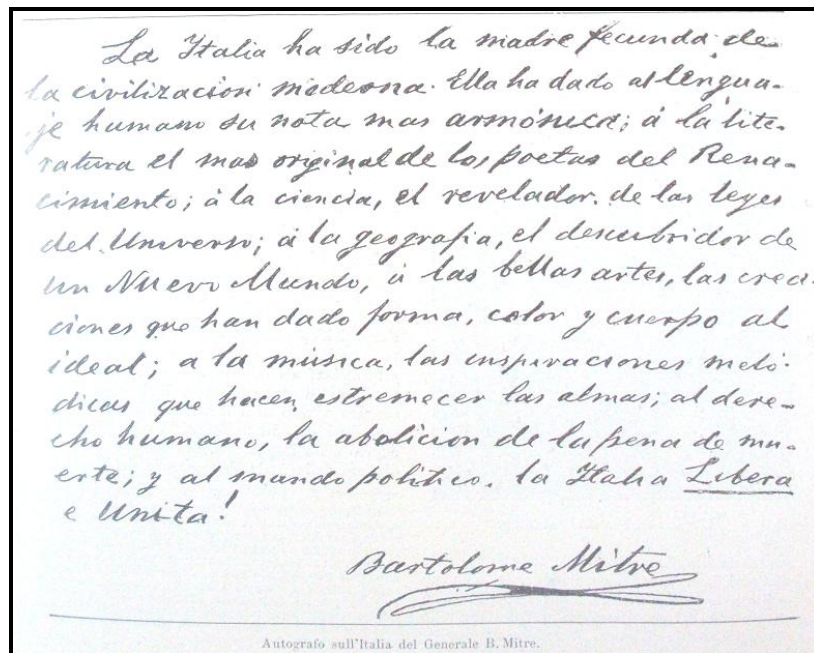 La Italia ha sido la madre fecunda de
la civilizacion moderna. Ella ha dado al lengua-
je humano su nota mas armónica; á la lite-
ratura el mas original de los poetas del Rena-
cimiento; á la ciencia, el revelador de las leyes
del Universo; á la geografia, el descubridor de
un Nuevo Mundo, á las bellas artes, las crea-
ciones que han dado forma, color y cuerpo al
ideal; a la música, las inspiraciones meló-
dicas que hacen estremecer las almas; al dere-
cho humano, la abolicion de la pena de mu-
erte; y al mundo politico, la Italia Libera
e Unita!
Bartolome Mitre
Autografo sull'Italia del Generale B. Mitre.